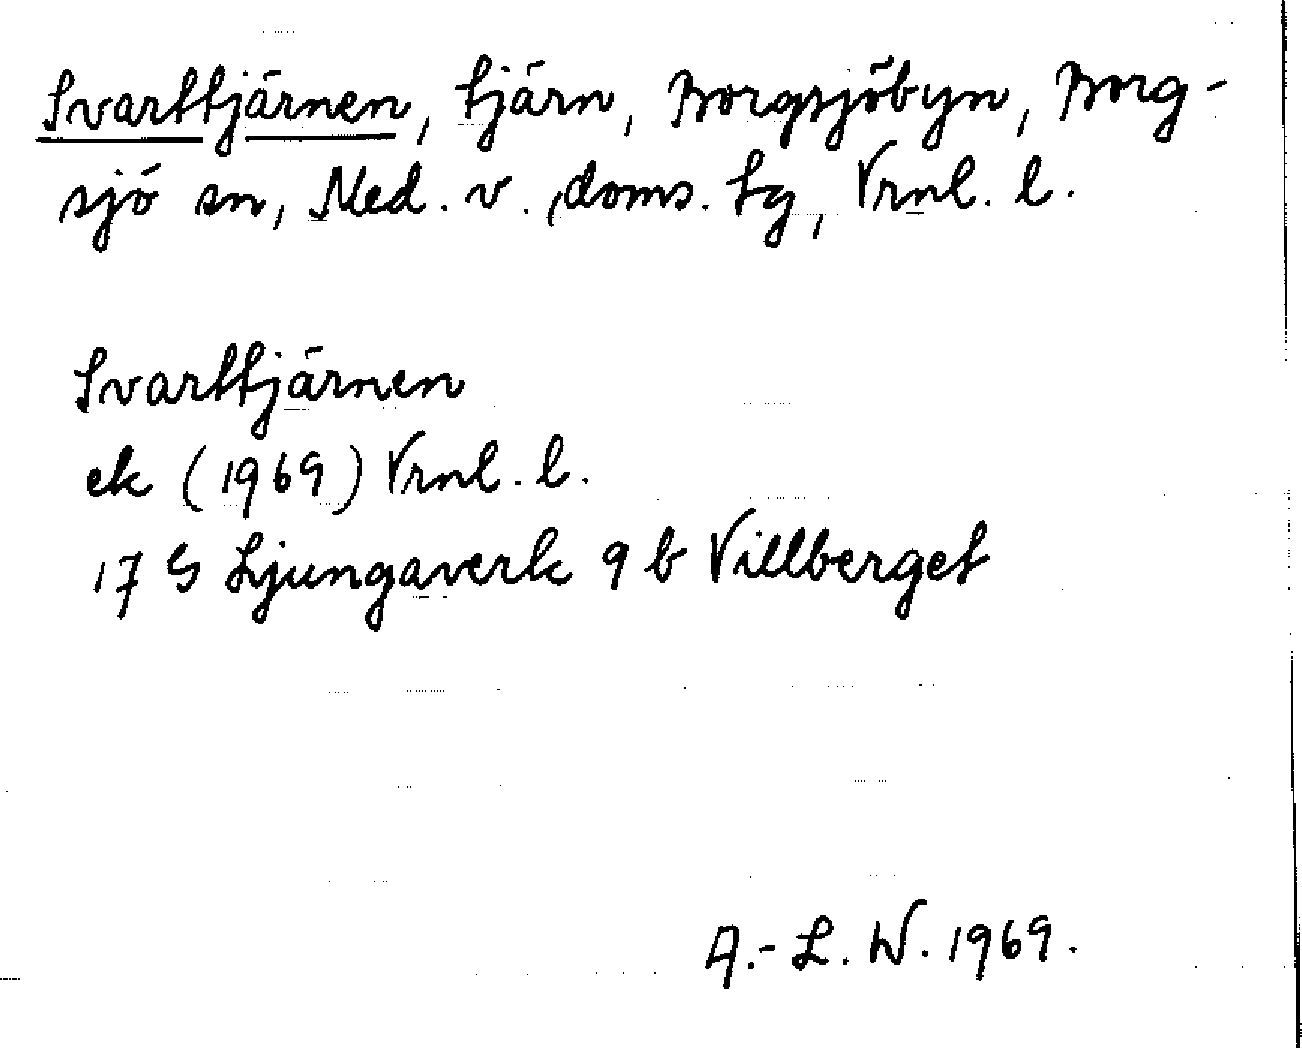 Svarttjärnen, tjärn, Borgsjöbyn, Borg-
sjö sn, Med. v. doms. tg, Vrnl. l.
Svarttjärnen
ek (1969) Vrnl. l.
17 G Ljungaverk 9 b Villberget
A.-L. W. 1969.